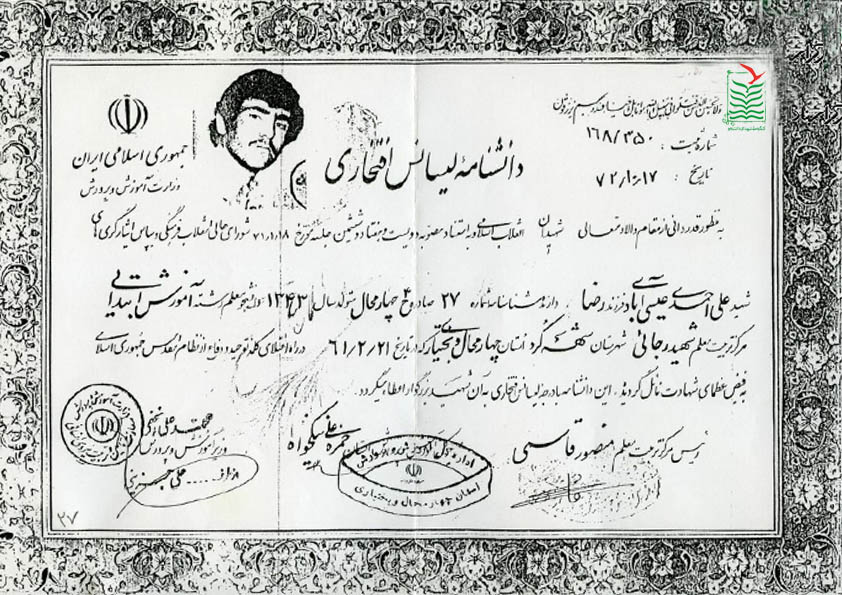 شماره ثبت : ۱۶۸/۳۵۰
تاریخ : ۷۲/۶/۱۷
جمهوری اسلامی ایران
وزارت آموزش و پرورش
دانشنامه لیسانس افتخاری
به منظور قدردانی از مقام والا و متعالی شهیدان انقلاب اسلامی و به استناد مصوبه دویست و هفتاد و ششمین جلسه مورخ ۷۱/۱/۱۸ شورای عالی انقلاب فرهنگی و بپاس ایثارگری های
شهید علی احمدی عیسی آبادی فرزند رضا دارنده شناسنامه شماره ۲۷ صادره چهارمحال متولد سال ۱۳۴۳ دانشجو معلم رشته آموزش ابتدایی
مرکز تربیت معلم شهید رجائی شهرستان شهرکرد استان چهارمحال و بختیاری که در تاریخ ۶۱/۲/۲۱ در راه اعتلای کلمه توحید و دفاع از نظام مقدس جمهوری اسلامی
به فیض عظمای شهادت نائل گردید، این دانشنامه با درجه لیسانس افتخاری به آن شهید بزرگوار اعطا میگردد.
رئیس مرکز تربیت معلم منصور قاسمی
حمزه علی نیکخواه
محمد علی نجفی
وزیر آموزش و پرورش
از طرف
اداره کل آموزش و پرورش
استان چهارمحال و بختیاری
۲۷